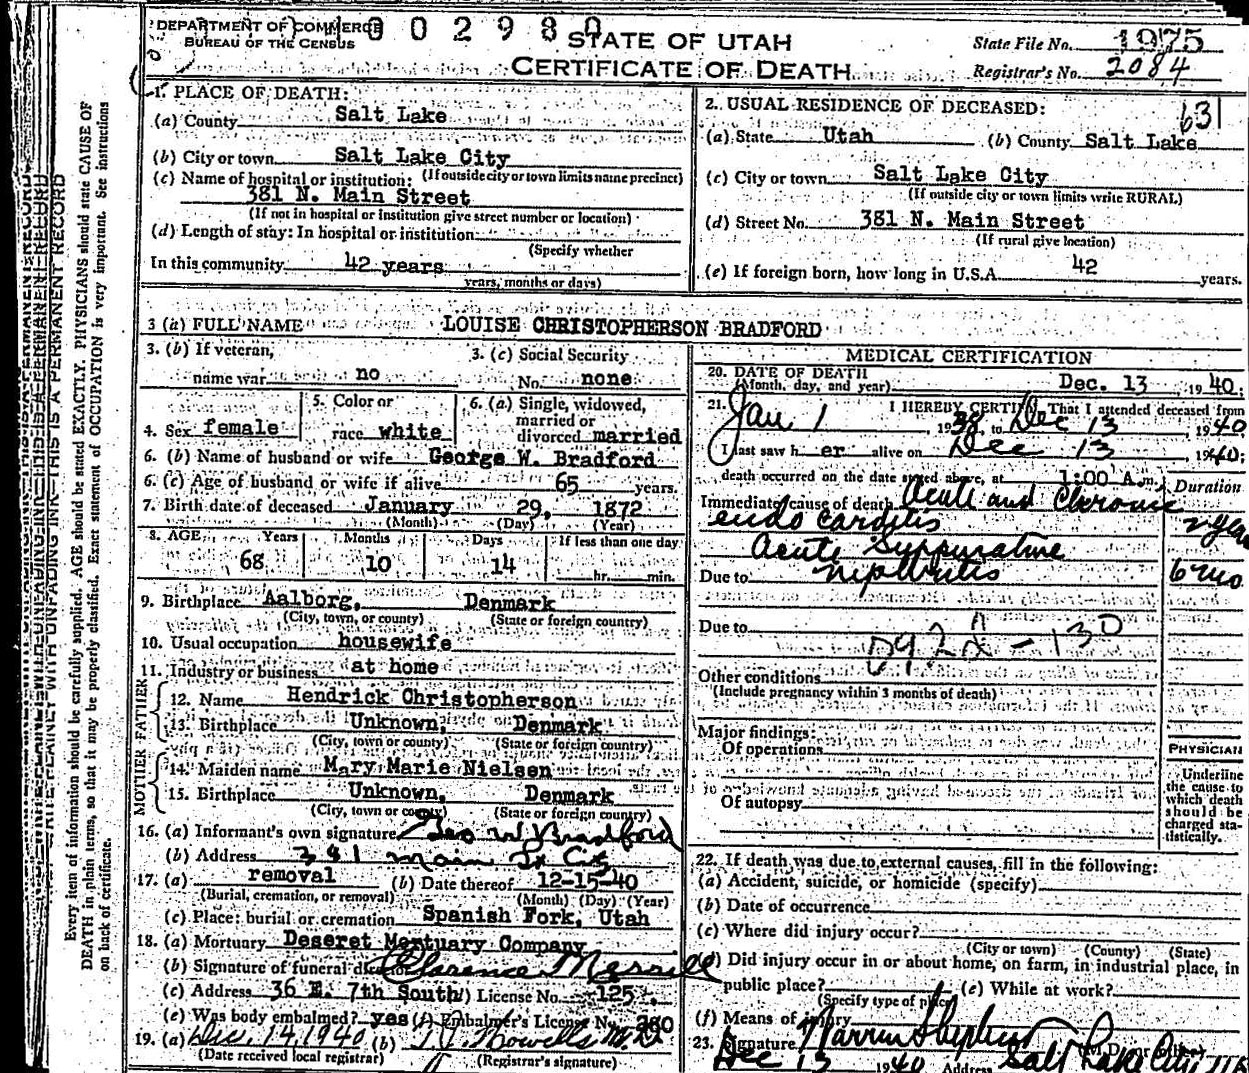 DEPARTMENT OF COMMERCE
BUREAU OF THE CENSUS
0 0 2 9 8 0
STATE OF UTAH
CERTIFICATE OF DEATH
State File No. 1975
Registrar's No. 2084
1. PLACE OF DEATH:
(a) County Salt Lake
(b) City or town Salt Lake City
(If outside city or town limits name precinct)
(c) Name of hospital or institution:
381 N. Main Street
(If not in hospital or institution give street number or location)
(d) Length of stay: In hospital or institution
(Specify whether
In this community 42 years
years, months or days)
2. USUAL RESIDENCE OF DECEASED: 631
(a) State Utah (b) County Salt Lake
(c) City or town Salt Lake City
(If outside city or town limits write RURAL)
(d) Street No. 381 N. Main Street
(If rural give location)
(e) If foreign born, how long in U.S.A. 42 years.
3 (a) FULL NAME LOUISE CHRISTOPHERSON BRADFORD
3. (b) If veteran, name war no
3. (c) Social Security No. none
4. Sex female
5. Color or race white
6. (a) Single, widowed, married or divorced married
6. (b) Name of husband or wife George W. Bradford
6. (c) Age of husband or wife if alive 65 years.
7. Birth date of deceased January 29, 1872
(Month) (Day) (Year)
8. AGE Years Months Days If less than one day
68 10 14 hr. min.
9. Birthplace Aalborg, Denmark
(City, town, or county) (State or foreign country)
10. Usual occupation housewife
11. Industry or business at home
FATHER
12. Name Hendrick Christopherson
13. Birthplace Unknown, Denmark
(City, town or county) (State or foreign country)
MOTHER
14. Maiden name Mary Marie Nielsen
15. Birthplace Unknown, Denmark
(City, town or county) (State or foreign country)
16. (a) Informant's own signature Geo W Bradford
(b) Address 381 Main St City
17. (a) removal (b) Date thereof 12-15-40
(Burial, cremation, or removal) (Month) (Day) (Year)
(c) Place: burial or cremation Spanish Fork, Utah
18. (a) Mortuary Deseret Mortuary Company
(b) Signature of funeral director Clarence Merrill
(c) Address 36 E. 7th South License No. 125
(e) Was body embalmed? yes (f) Embalmer's License No.
19. (a) Dec. 14, 1940 (b)
(Date received local registrar) (Registrar's signature)
MEDICAL CERTIFICATION
20. DATE OF DEATH
(Month, day, and year) Dec. 13 1940;
21. I HEREBY CERTIFY, That I attended deceased from
Jan 1 1938, to Dec 13, 1940
I last saw h er alive on Dec 13, 1940;
death occurred on the date stated above, at 1:00 A.m. Duration
Immediate cause of death Acute and Chronic
endo carditis
Acute Suppurative
Due to nephritis 6 mo
Due to
Other conditions
(Include pregnancy within 3 months of death)
Major findings:
Of operations
Of autopsy
PHYSICIAN
Underline
the cause to
which death
should be
charged sta-
tistically.
22. If death was due to external causes, fill in the following:
(a) Accident, suicide, or homicide (specify)
(b) Date of occurrence
(c) Where did injury occur?
(City or town) (County) (State)
(d) Did injury occur in or about home, on farm, in industrial place, in
public place? (e) While at work?
(Specify type of place)
(f) Means of injury
23. Signature
Dec 13 1940 Address Salt Lake City
Every item of information should be carefully supplied. AGE should be stated EXACTLY. PHYSICIANS should state CAUSE OF
DEATH in plain terms, so that it may be properly classified. Exact statement of OCCUPATION is very important. See instructions
on back of certificate.
WRITE PLAINLY WITH UNFADING INK—THIS IS A PERMANENT RECORD